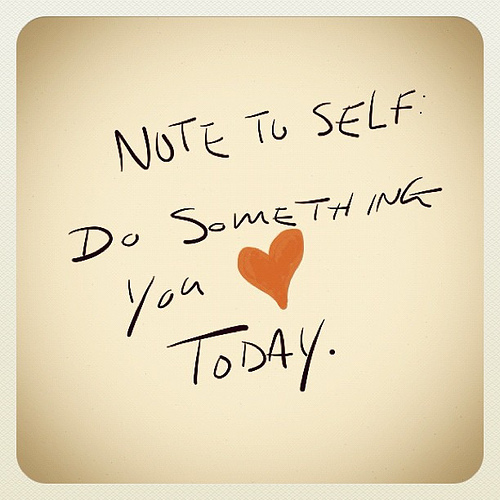 NOTE TO SELF:
DO SOMETHING
YOU
TODAY.